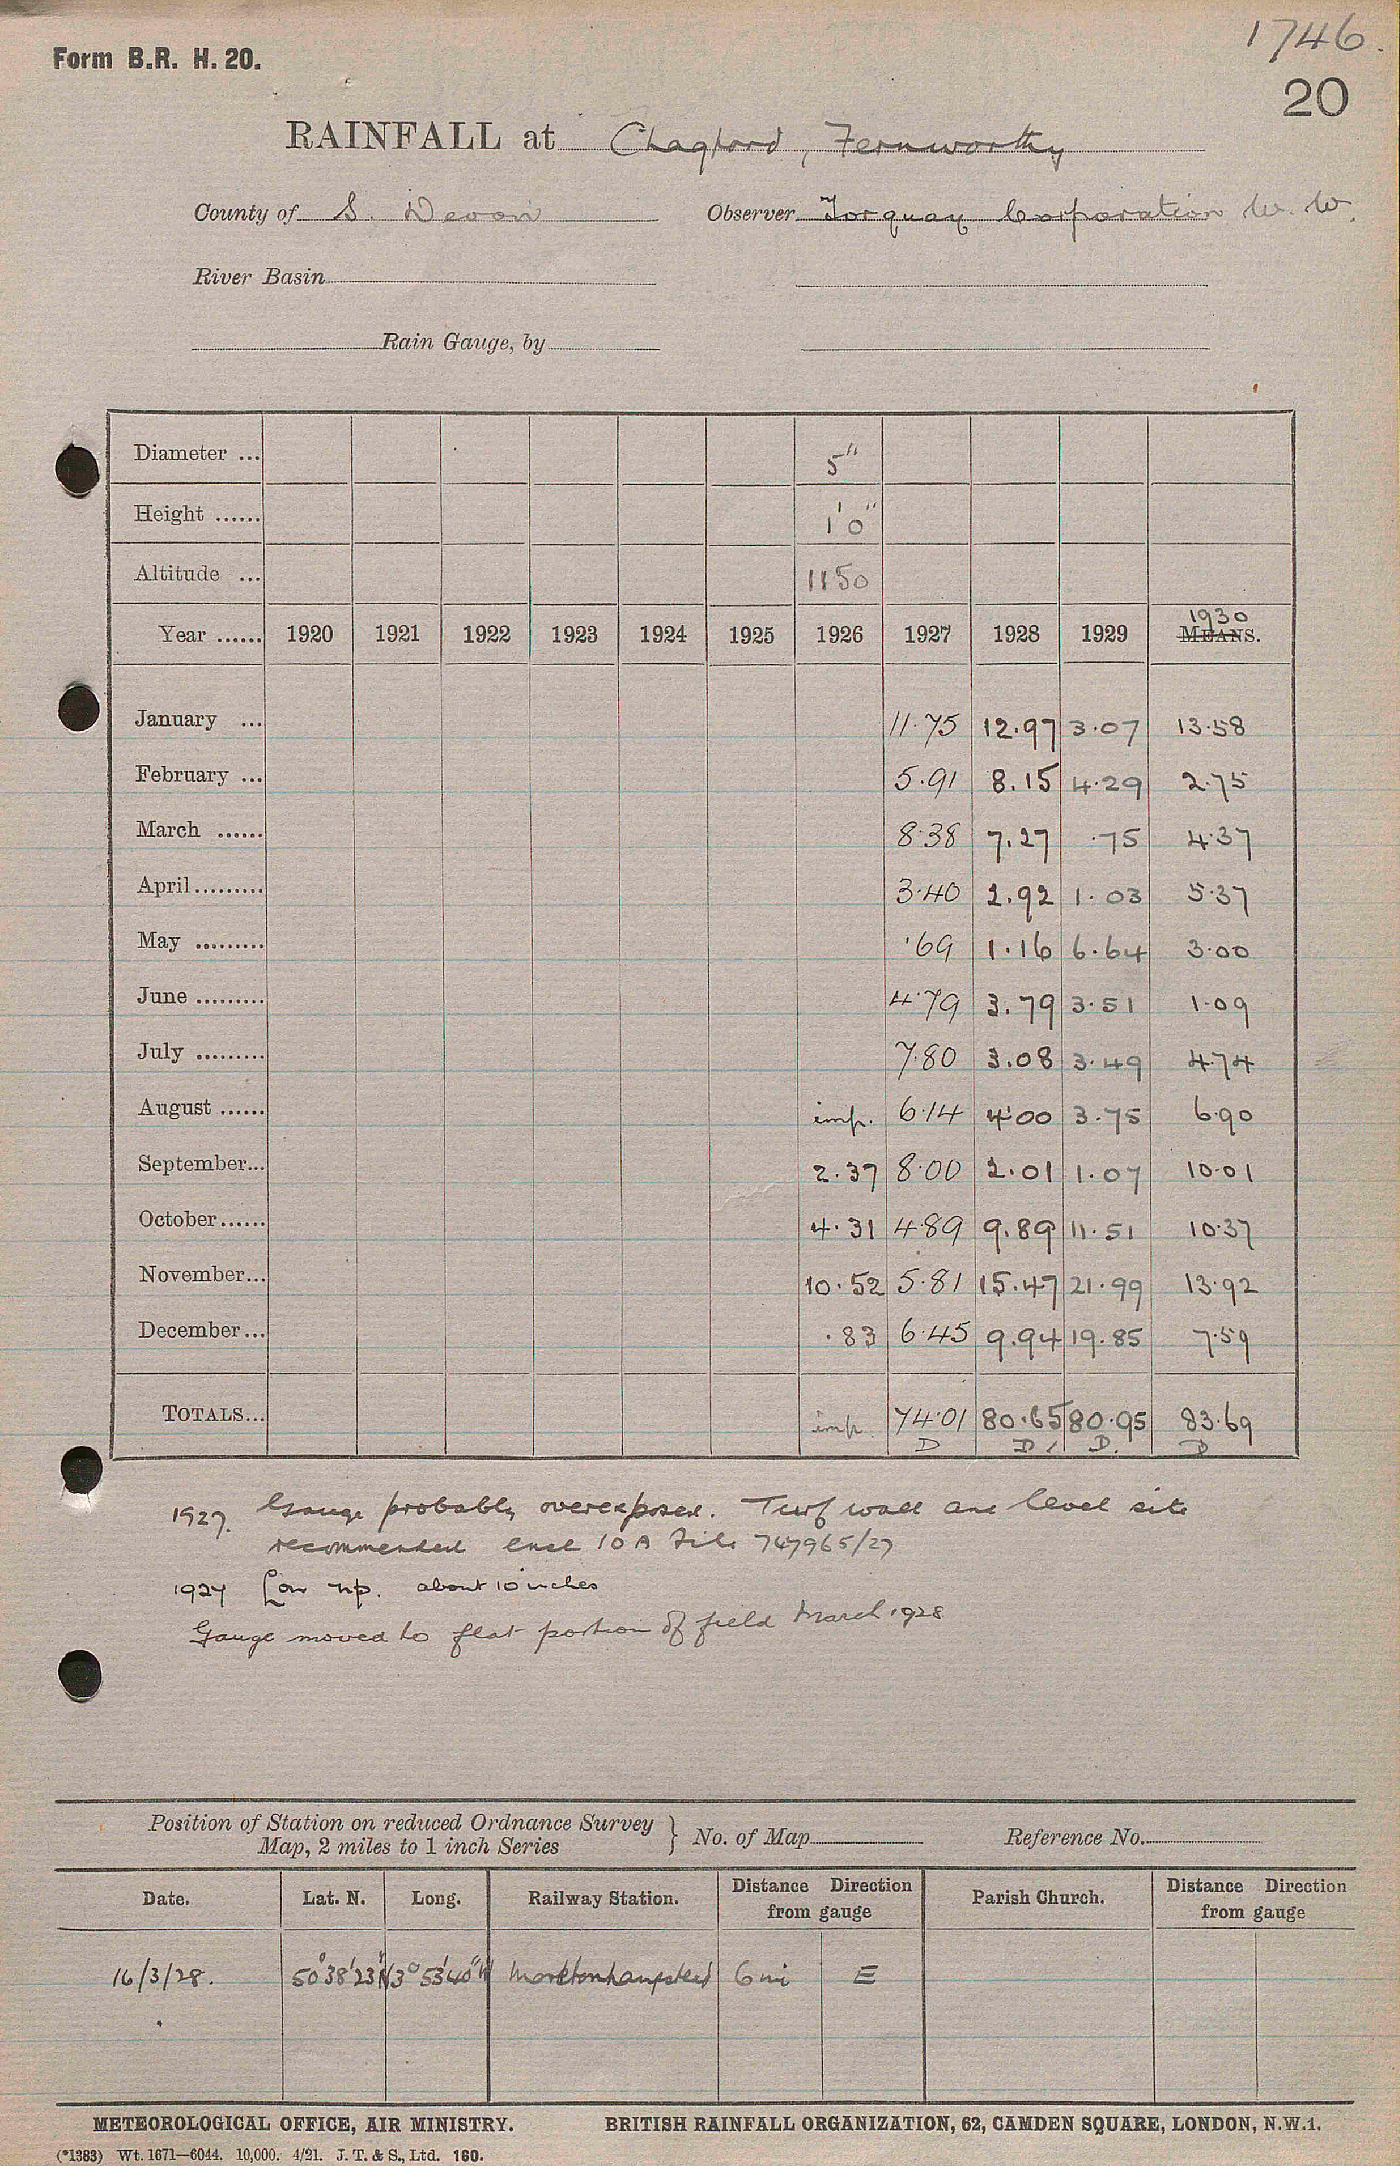 1746.
Form B.R. H. 20.
20
RAINFALL at Chagford, Fernworthy
County of S. Devon Observer Torquay Corporation W. W.
River Basin
Rain Gauge, by
Diameter ... 5"
Height ...... 1'0"
Altitude ... 1150
Year ...... 1920 1921 1922 1923 1924 1925 1926 1927 1928 1929 MEANS. 1930
January ... 11.75 12.97 3.07 13.58
February ... 5.91 8.15 4.29 2.75
March ...... 8.38 7.27 .75 4.37
April ......... 3.40 2.92 1.03 5.37
May ......... .69 1.16 6.64 3.00
June ......... 4.79 3.79 3.51 1.09
July ......... 7.80 3.08 3.49 4.74
August ...... imp. 6.14 4.00 3.75 6.90
September... 2.37 8.00 2.01 1.07 10.01
October ...... 4.31 4.89 9.89 11.51 10.37
November... 10.52 5.81 15.47 21.99 13.92
December... .83 6.45 9.94 19.85 7.59
TOTALS... imp. 74.01 80.65 80.95 83.69
D D / D. D
1927. Gauge probably overexposed. Turf wall and level site
recommended 10 A File 747965/27
1927 up. about 10 inches
Gauge moved to flat portion of field March 1928
Position of Station on reduced Ordnance Survey
Map, 2 miles to 1 inch Series } No. of Map Reference No.
Date. Lat. N. Long. Railway Station. Distance Direction from gauge Parish Church. Distance Direction from gauge
16/3/28. 50°38'23"N 3°53'40"W Moretonhampstead 6 mi E
METEOROLOGICAL OFFICE, AIR MINISTRY. BRITISH RAINFALL ORGANIZATION, 62, CAMDEN SQUARE, LONDON, N.W.1.
(*1383) Wt. 1671—6044. 10,000. 4/21. J. T. & S., Ltd. 160.